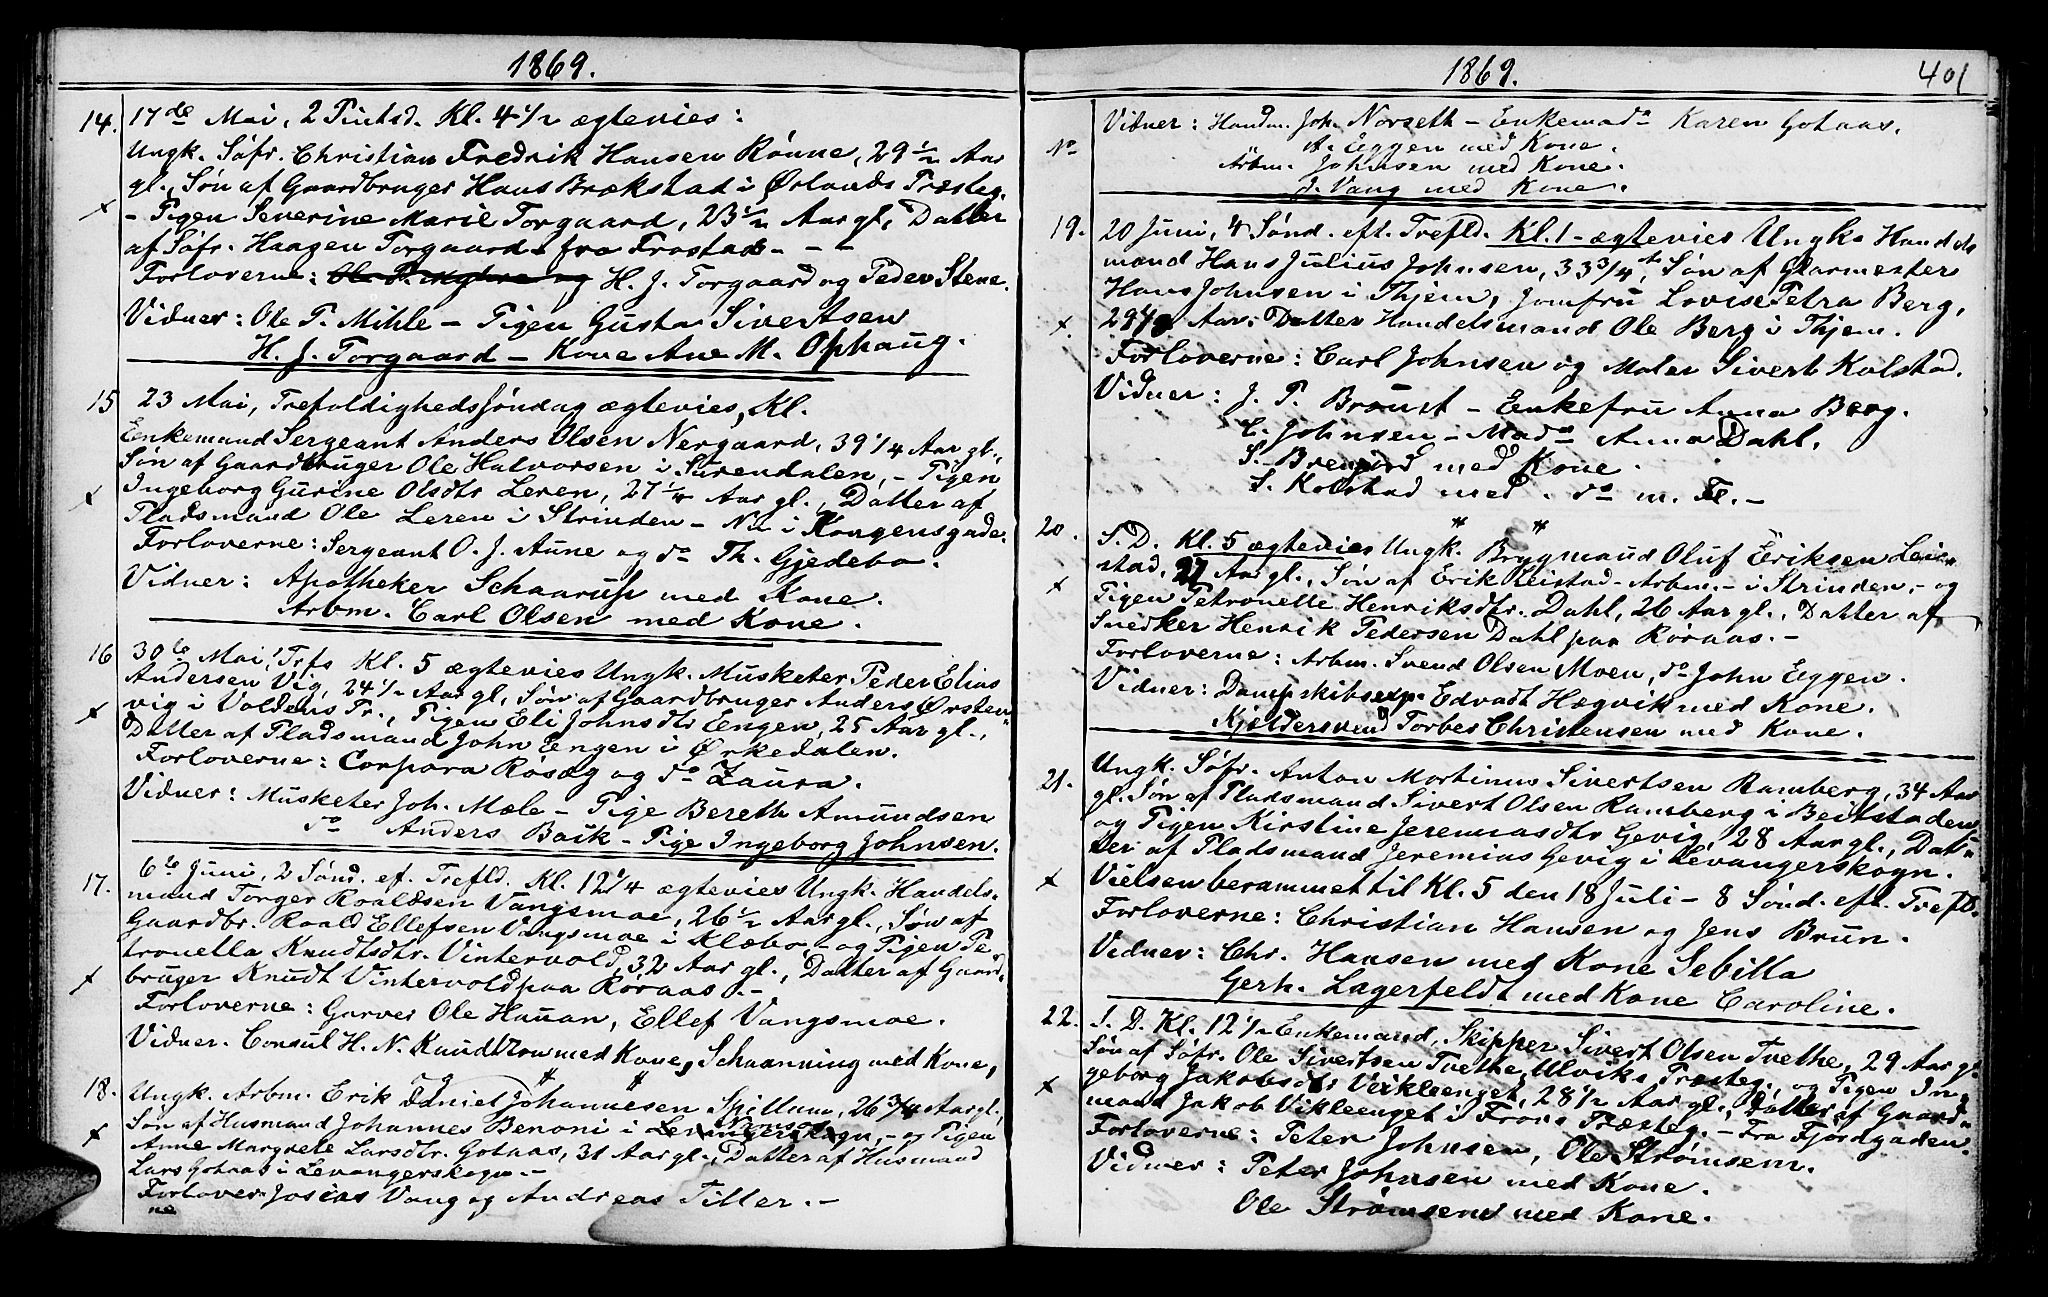 1869.
14. 17de Mai, 2 Pintsd. Kl. 4 1/2 ægtevies:
Ungk. Søfr. Christian Fredrik Hansen Rønne, 29 1/2 Aar
gl., Søn af Gaardbruger Hans Brækstad i Ørlands Præsteg.
x - Pigen Severine Marie Torgaard, 23 1/2 Aar gl., Datter
af Søfr. Haagen Torgaard - fra Frostad - - -
Forloverne: H. J. Torgaard og Peder Stene.
Vidner: Ole P. Mihle - Pigen Gusta Sivertsen
H. J. Torgaard - Kone Ane M. Ophaug.
15 23 Mai, Trefoldighedssøndag ægtevies, Kl.
Enkemand Sergeant Anders Olsen Nergaard, 39 1/4 Aar gl.,
Søn af Gaardbruger Ole Halvorsen i Surendalen, - Pigen
x Ingeborg Gurine Olsdtr Leren, 27 1/4 Aar gl., Datter af
Pladsmand Ole Leren i Strinden - Nu i Kongensgade.
Forloverne: Sergeant O. J. Aune og do Th. Gjedebo.
Vidner: Apotheker Schaaruß med Kone.
Arbm. Carl Olsen med Kone.
16 30te Mai, Trfs Kl. 5 ægtevies Ungk. Musketer Peder Elias
Andersen Vig, 24 1/2 Aar gl, Søn af Gaardbruger Anders Ørsten
x vig i Voldens Pr., Pigen Eli Johnsdtr Engen, 25 Aar gl.,
Datter af Pladsmand John Engen i Ørkedalen.
Forloverne: Corpora Røsæg og do Zaura.
Vidner: Musketer Joh. Mæle - Pige Bereth Amundsen
do Anders Baik - Pige Ingeborg Johnsen.
17. 6te Juni, 2 Sønd. ef. Trefld. Kl. 12 1/4 ægtevies Ungk. Handels-
mand Torger Roaldsen Vangsmoe, 26 1/2 Aar gl., Søn af
Gaardbr. Roald Ellefsen Vangsmoe i Klæbo - og Pigen Pe
tronella Knudtsdtr. Vintervold, 32 Aar gl., Datter af Gaard-
x bruger Knudt Vintervold paa Røraas. -
Forloverne: Garver Ole Hauan, Ellef Vangsmoe.
Vidner. Consul H. N. Knudtzow med Kone, Schaanning med Kone,
18. Ungk. Arbm. Erik Daniel Johannesen Spillum, 26 3/4 Aar gl.,
x Søn af Husmand Johannes Benoni i Namsos, - og Pigen
Anne Margrete Larsdtr. Gotaas, 31 Aar gl., Datter af Husmand
Lars Gotaas i Levangerskogn. -
Forlover Josias Vang og Andreas Tiller. -
ne
1869. 401
No Vidner: Handm. Joh. Norseth - Enkemada Karen Gotaas.
A. Eggen med Kone.
Arbm. Johnsen med Kone.
J. Vang med Kone.
19. 20 Juni, 4 Sønd. eft. Trefld. Kl. 1 - ægtevies Ungk. Handels
mand Hans Julius Johnsen, 33 3/4, Søn af Glarmester
Hans Johnsen i Thjem, Jomfru Lovise Petra Berg,
x. 29 Aar: Datter Handelsmand Ole Berg i Thjem.
Forloverne: Carl Johnsen og Maler Sivert Kolstad.
Vidner: J. P. Broust - Enkefru Anna Berg.
C. Johnsen - Mada Anna Dahl.
S. med Kone.
S. Kolstad med. do m. Fl. -
20. S. D. Kl. 5 ægtevies Ungk. Brygmand Oluf Eriksen Leir
stad, 27 Aar gl., Søn af Erik Leistad - Arbm. - i Strinden, - og
x Pigen Petronelle Henriksdtr. Dahl, 26 Aar gl., Datter af
Snedker Henrik Pedersen Dahl paa Røraas. -
Forloverne: Arbm. Svend Olsen Moen, do John Eggen.
Vidner: Dampskibsexp. Edvadt Hægvik med Kone.
Kjeldersvend Torbes Christensen med Kone.
21. Ungk. Søfr. Anton Martinus Sivertsen Ramberg, 34 Aar
gl. Søn af Pladsmand Sivert Olsen Ramberg i Beitstaden,
og Pigen Kirstine Jeremiasdtr Gevig, 28 Aar gl., Dat-
ter af Pladsmand Jeremias Gevig i Levangerskogn.
x Vielsen berammet til Kl. 5 den 18 Juli - 8 Sønd. eft. Trefld.
Forloverne: Christian Hansen og Jens Brun.
Vidner: Chr. Hansen med Kone Sebilla
Gerh. Lagerfeldt med Kone Caroline.
22. S. D. Kl. 12 1/2 Enkemand, Skipper Sivert Olsen Tvethe, 29 Aar gl.
Søn af Søfr. Ole Sivertsen Tvethe, Ulviks Præsteg., og Pigen In-
x geborg Jakobsdtr Vikleenget, 28 1/2 Aar gl., Datter af Gaard-
mand Jakob Vikleenget i Frors Præsteg. - Fra Fjordgaden.
Forloverne: Peter Johnsen, Ole Strømsem.
Vidner: Peter Johnsen med Kone.
Ole Strømsem med Kone.